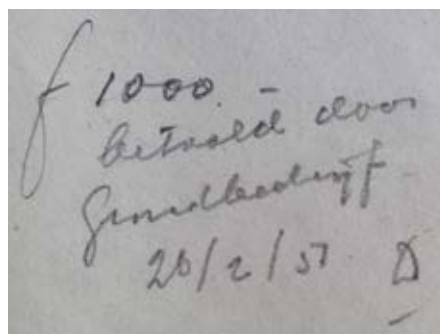 f 1000.-
betaald door
Grondbedrijf
26/2/51. D